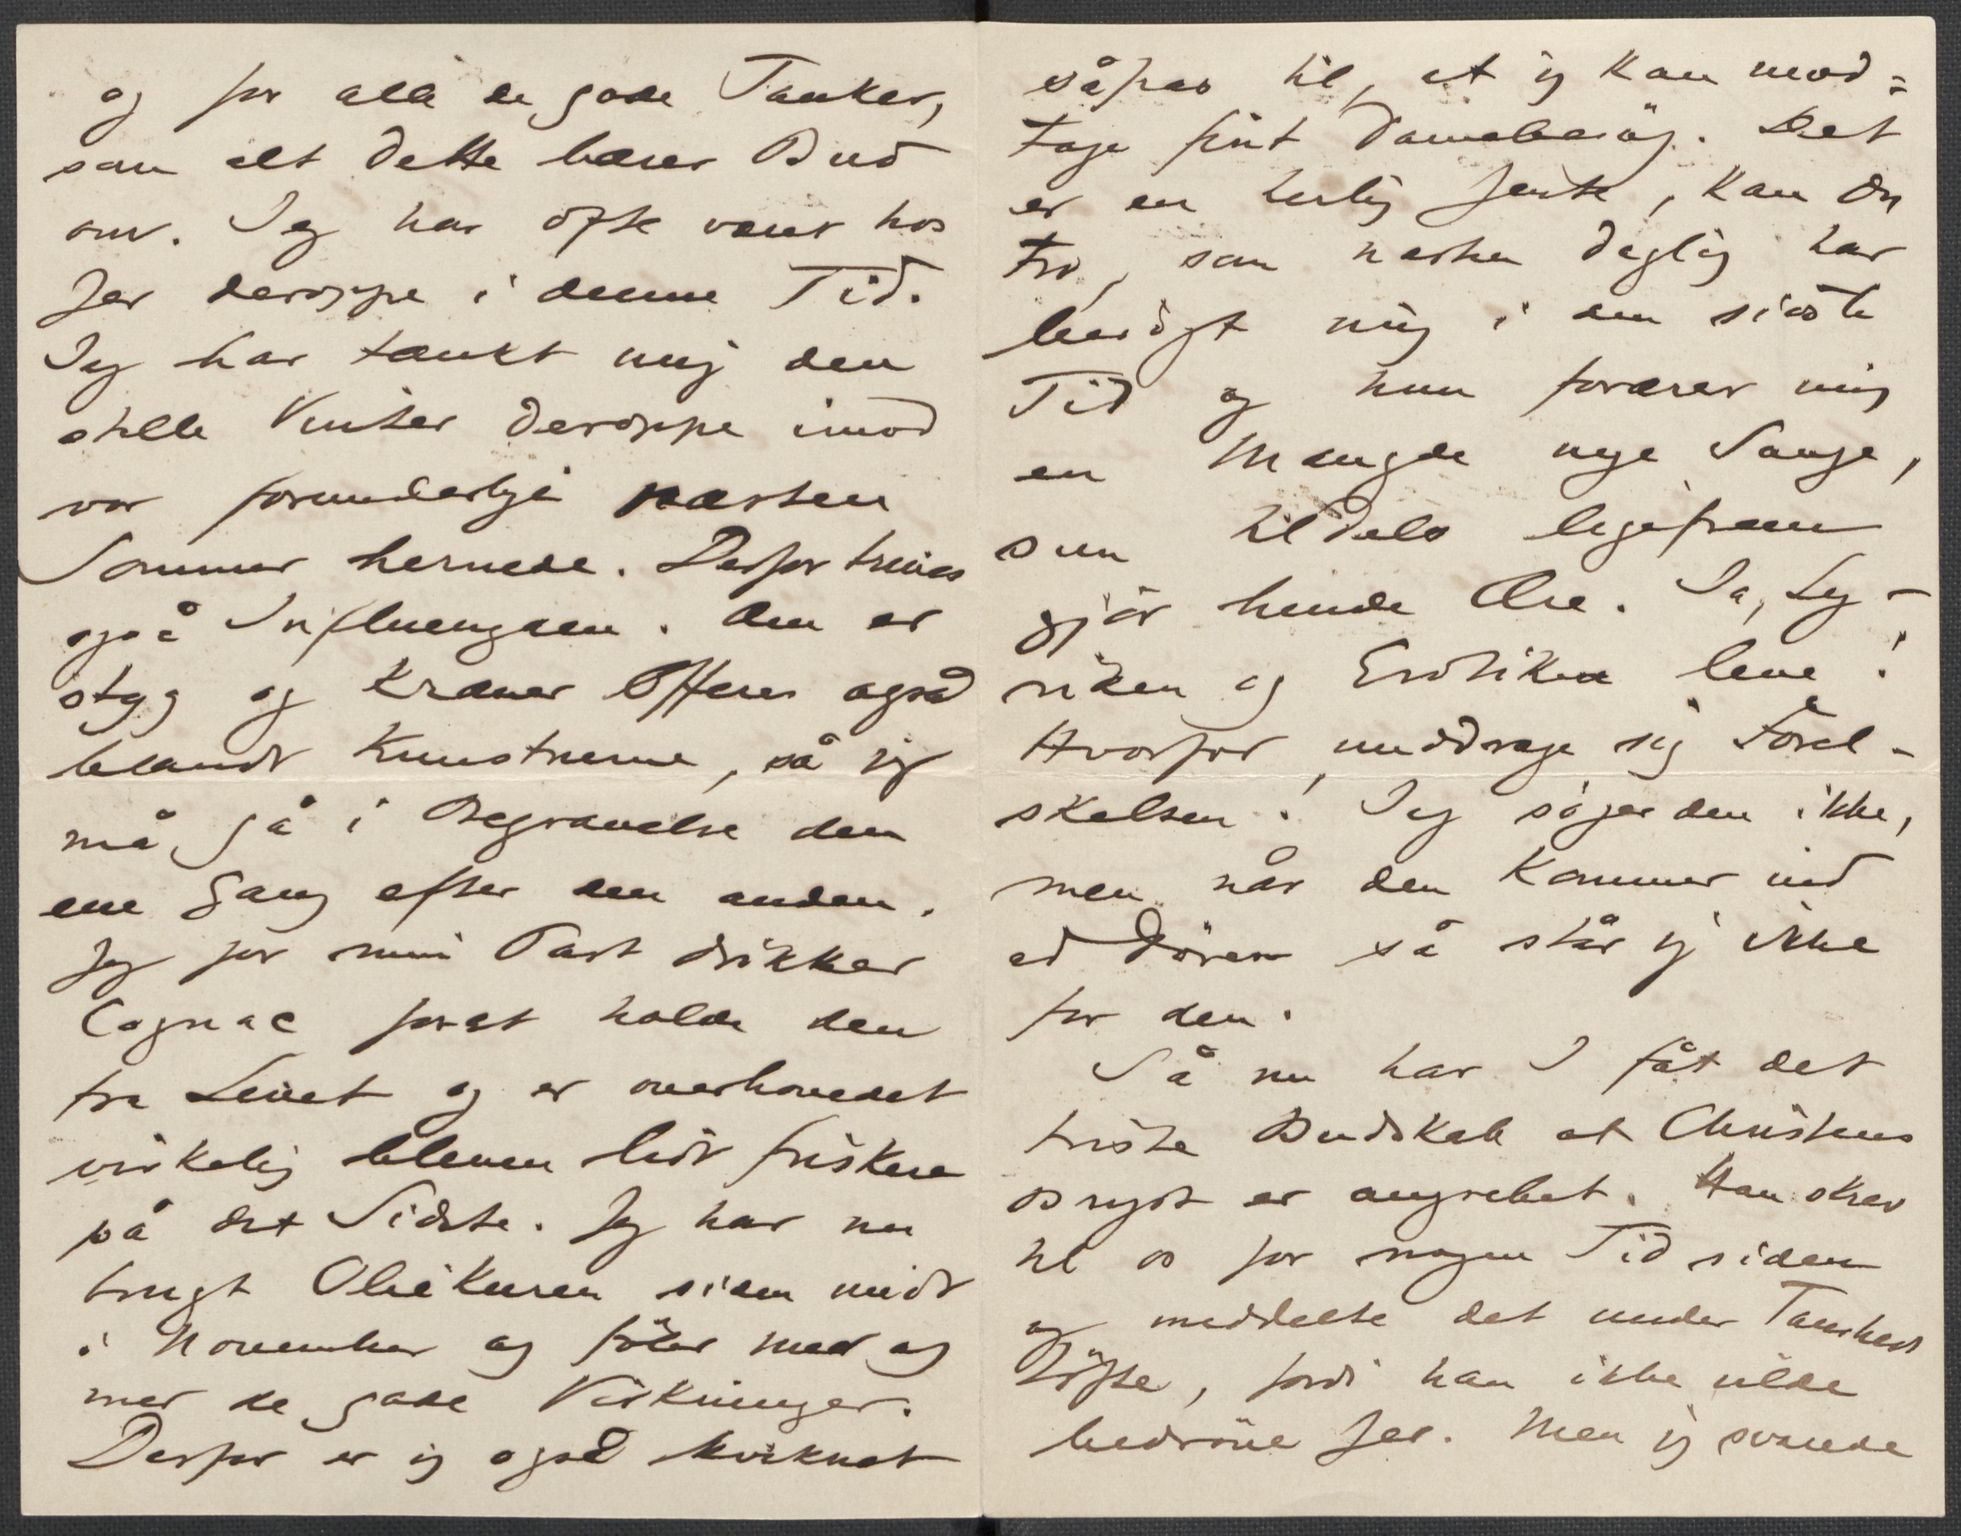 og for alle de gode Tanker,
som alt dette bærer Bud
om. Jeg har ofte været hos
Jer deroppe i denne Tid.
Jeg har tænkt mig den
stille Vinter deroppe imod
vor forunderlige næsten
Sommer hernede. Derfor trives
også Influenzaen. Den er
styg og kræver Offere også
blandt Kunstnerne, så jeg
må gå i Begravelse den
ene Gang efter den anden.
Jeg for min Part drikker
Cognac forat holde den
fra Livet og er overhovedet
virkelig bleven lidt friskere
på det Sidste. Jeg har nu
brugt Oliekuren siden midt
i November og føler mer og
mer de gode Virkninger.
Derfor er jeg også kviknet
såpas til, at jeg kan mod=
tage fint Damebesøg. Det
er en herlig Jente, kan Du
tro, som næsten daglig har
besøgt mig i den sidste
Tid og hun forærer mig
en Mængde nye Sange,
som tildels ligefrem
gjør hende Ære. Ja, Ly-
riken og Erotiken leve!
Hvorfor unddrage sig Forel-
skelsen! Jeg søger den ikke,
men når den kommer ind
ad Døren så står jeg ikke
for den.
Så nu har I fåt det
triste Budskab at Christens
Bryst er angrebet. Han skrev
til os for nogen Tid siden
og meddelte det under Tausheds
Løfte, fordi han ikke vilde
bedrøve Jer. Men jeg svarede